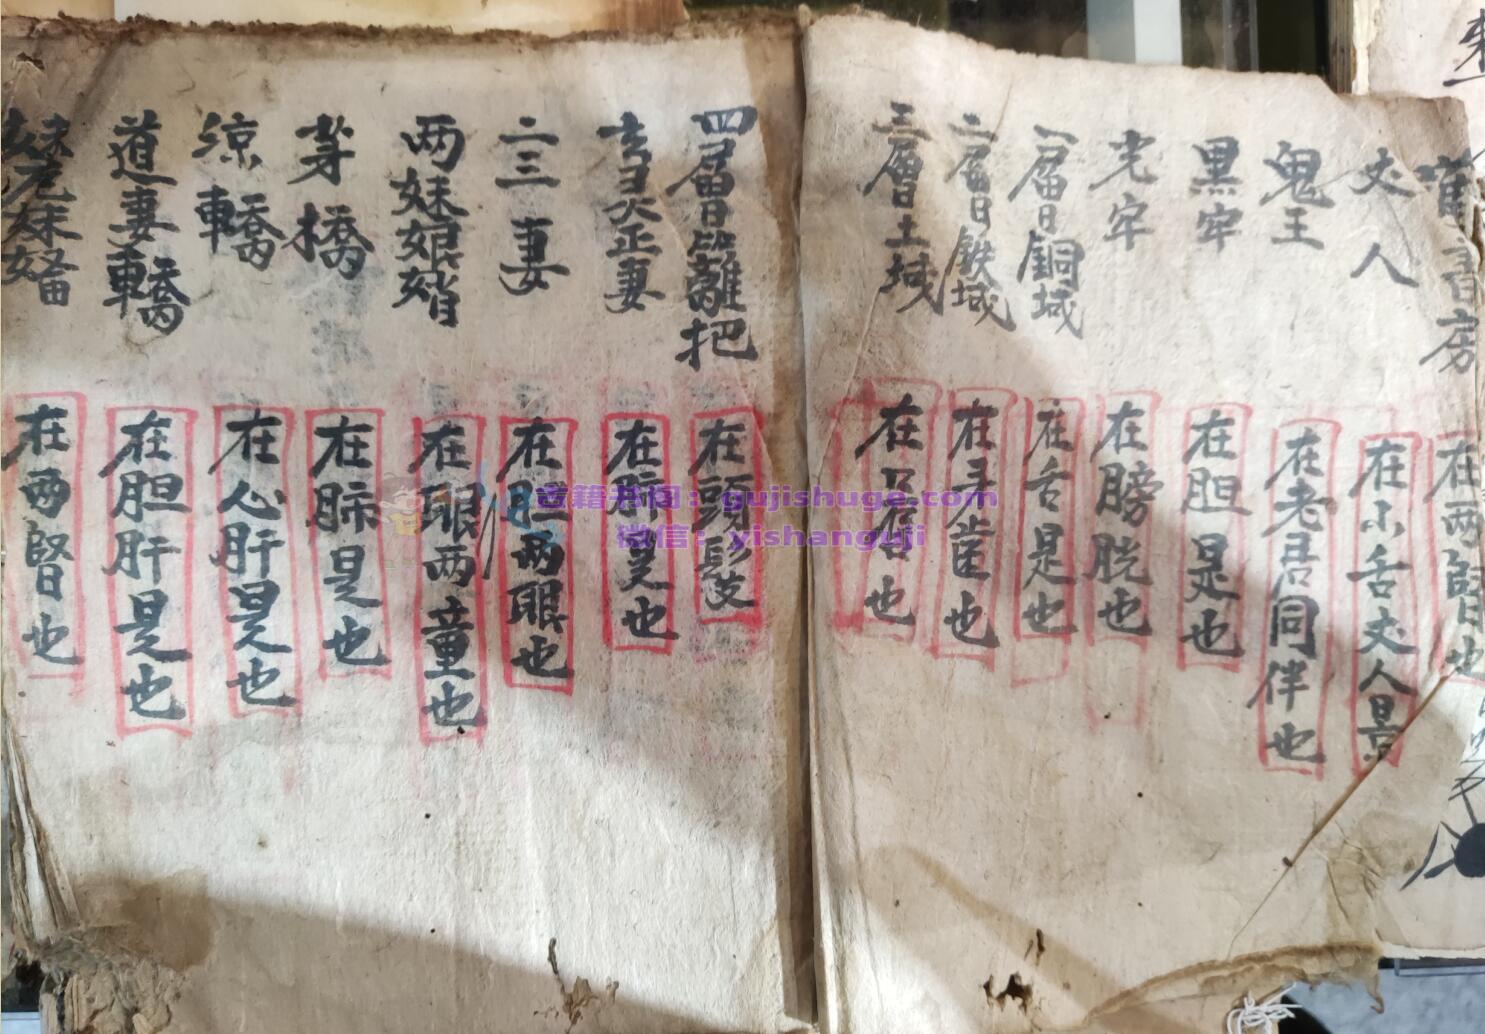 書房
在两腎也
丈人
在小舌丈人是
鬼王
在老君同伴也
黑牢
在胆是也
光牢
在膀胱也
一層銅城
在舌是也
二層鉄城
在牙歯也
三層土城
在也
四層籬把
在頭髮
正妻
在肺是也
二三妻
在胆两眼也
两妹娘婿
在眼两童也
茅橋
在肺是也
凉轎
在心肝是也
道妻轎
在胆肝是也
在两腎也
古籍书阁：gujishuge.com
微信：yishanguji